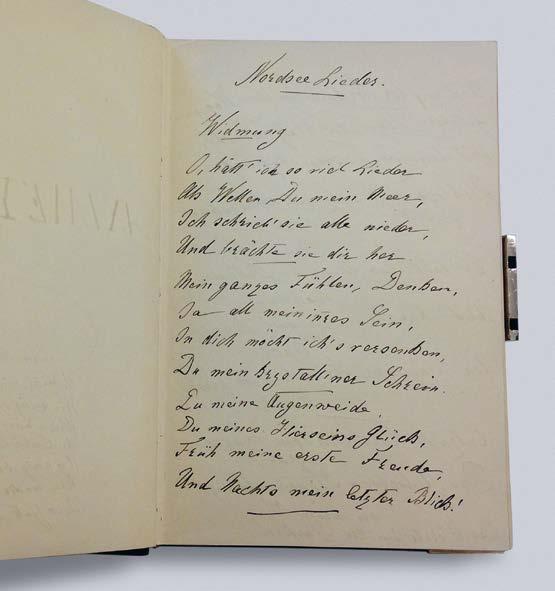 Nordsee Lieder.
Widmung
O, hätt' ich so viel Lieder
Als Wellen Du mein Meer,
Ich schrieb' sie alle nieder,
Und brächte sie dir her
Mein ganzes Fühlen, Denken,
Ja all mein inres Sein,
In dich möcht ich's versenken,
Du mein krystall'ner Schrein.
Du meine Augenweide,
Du meines Hierseins Glück,
Früh meine erste Freude,
Und Nachts mein letzter Blick!